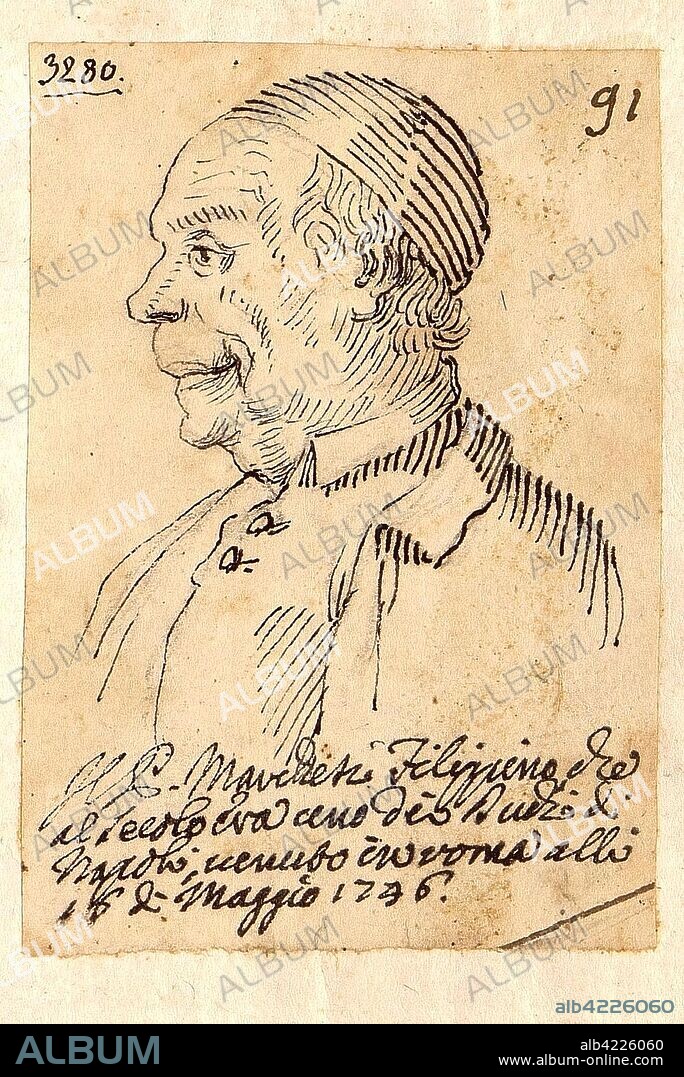 3280.
91
Il P. Filippino che
al secolo era uno de
Napoli, venuto in roma alli
16 di Maggio 1746.
ALBUM
alb4226060
ALBUM
alb4226060
www.album-online.com